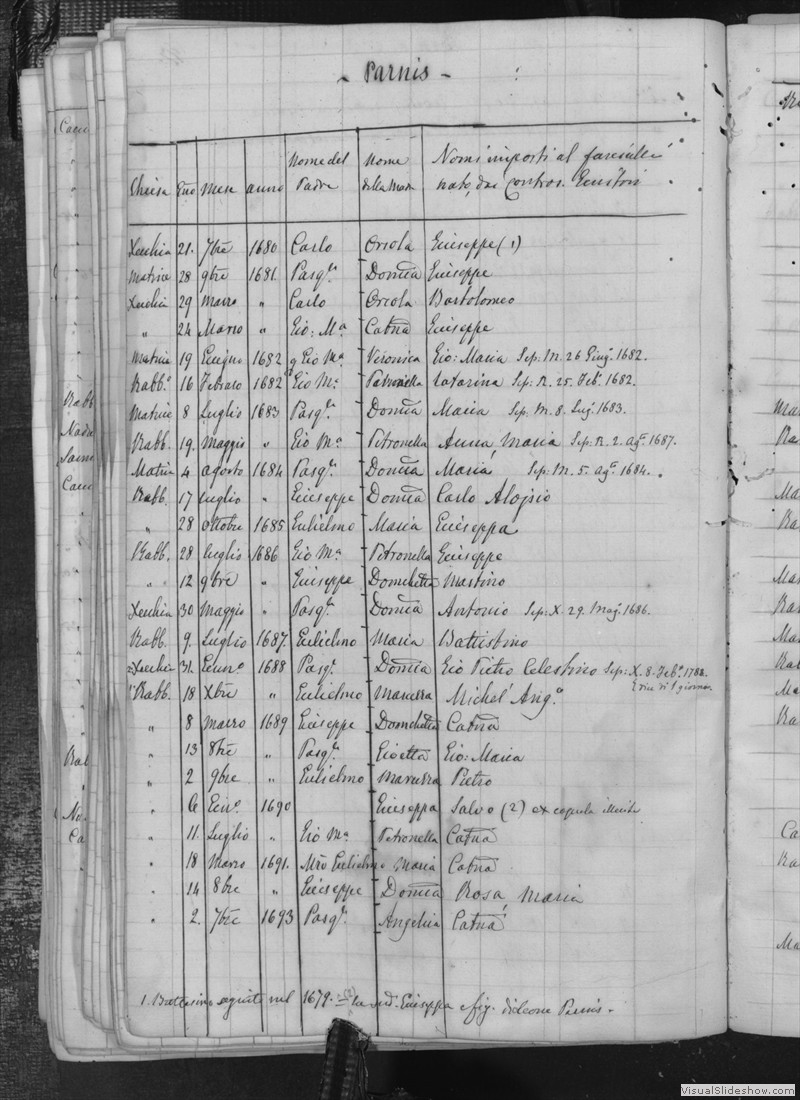 - Parnis -
Chiesa Gno mese anno Nome del Padre Nome della Madre Nomi imposti al fanciullo nato, dai
Xeuchia 21. 7bre 1680 Carlo Orsola Giuseppe (1)
Matrice 28 9bre 1681 Pasqle Domca Giuseppe
Xeuchia 29 Marzo " Carlo Orsola Bartolomeo
" 24 Marzo " Gio: Ma Catna Giuseppe
Matrice 19 Giugno 1682 Gio Ma Veronica Gio: Maria Sep: M. 26 Giug. 1682.
Rabbo 16 Febraro 1682 Gio Ma Petronella Catarina Sep: R. 25. Feb. 1682.
Matrice 8 Luglio 1683 Pasqle Domca Maria Sep: M. 8. Lug. 1683.
Rabb. 19. Maggio " Gio Ma Petronella Anna Maria Sep: R. 2. ago. 1687.
Matrice 4 agosto 1684 Pasqle Domca Maria Sep: M. 5. ago. 1684.
Rabb. 17 luglio " Giuseppe Domca Carlo Aloysio
" 28 ottobre 1685 Gulielmo Maria Giuseppa
Rabb. 28 luglio 1686 Gio Ma Petronella Giuseppe
" 12 9bre " Giuseppe Domchetta Martino
Xeuchia 30 Maggio " Pasqle Domca Antonio Sep: X. 29. Mag. 1686.
Rabb. 9. Luglio 1687 Gulielmo Maria Battistino
Xeuchia 31. Genro 1688 Pasqle Domca Gio Pietro Celestino Sep: X. 8. Febo. 1788.
giorno.
Rabb. 18 Xbre " Gulielmo Maruzza Michel' Ango.
" 8 Marzo 1689 Giuseppe Domchetta Catna
" 13 8bre " Pasqle Gioetta Gio: Maria
" 2 9bre " Gulielmo Maruzza Pietro
" 6 Genro 1690 Giuseppa Salvo (2) ex copula illicita
" 11. Luglio " Gio Ma Petronella Catna
" 18 Marzo 1691. Mro Gulielmo Maria Catna
" 14 8bre " Giuseppe Domca Rosa Maria
" 2. 7bre 1693 Pasqle Angelica Catna
1. Battesimo seguito nel 1679. (2) la Giuseppa e fig. di Leone Parnis.
VisualSlideshow.com